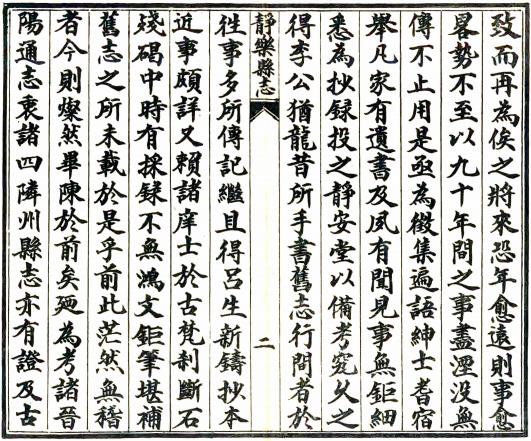 攷而再為俟之將來恐年愈遠則事愈
畧勢不至以九十年間之事盡湮没無
傳不止用是亟為徵集遍語紳士耆宿
舉凡家有遺書及夙有聞見事無鉅細
悉為抄録投之靜安堂以備考究久之
得李公猶龍昔所手書舊志行間者於
靜樂縣志
二
徃事多所傳記繼且得呂生新鑄抄本
近事頗詳又賴諸庠士於古梵刹斷石
殘碣中時有採録不無鴻文鉅筆堪補
舊志之所未載於是乎前此茫然無稽
者今則燦然畢陳於前矣廼為考諸晉
陽通志裒諸四隣州縣志亦有證及古